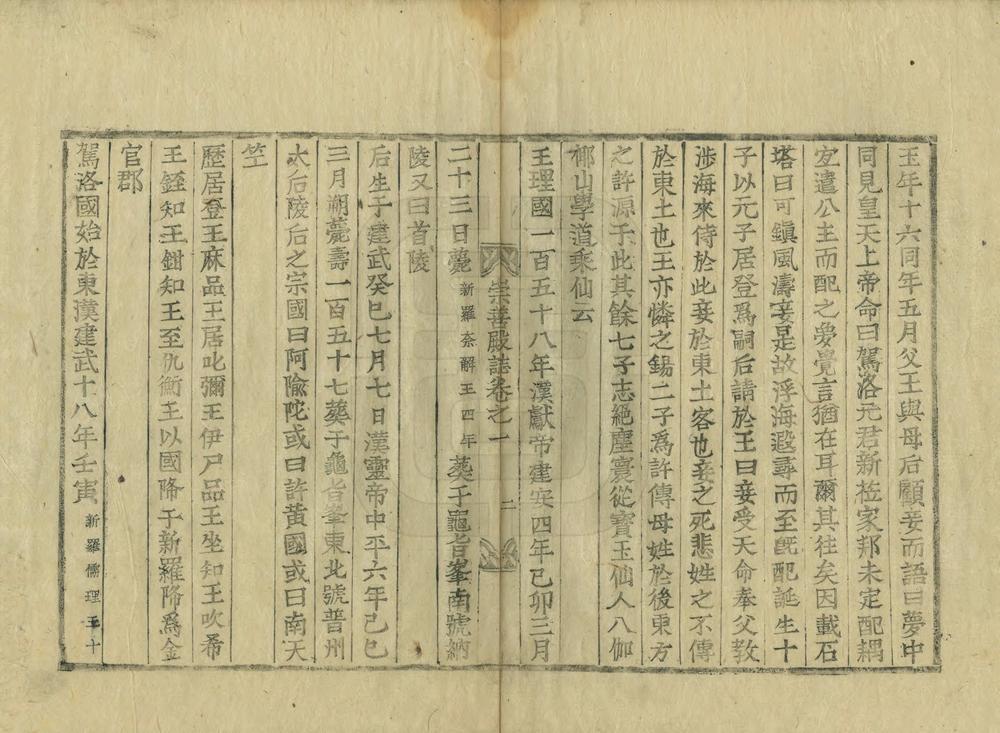 玉年十六同年五月父王與母后顧妾而語曰夢中
同見皇天上帝命曰駕洛元君新莅家邦未定配耦
宜遣公主而配之夢覺言猶在耳爾其往矣因載石
塔曰可鎭風濤妾是故浮海遐尋而至旣配誕生十
子以元子居登爲嗣后請於王曰妾受天命奉父敎
涉海來侍於此妾於東土客也妾之死悲姓之不傳
於東土也王亦憐之錫二子爲許傳母姓於後東方
之許源于此其餘七子志絶塵寰從寶玉仙人入伽
倻山學道乘仙云
王理國一百五十八年漢獻帝建安四年己卯三月
崇善殿誌卷之一 二
二十三日薨新羅奈解王四年葬于龜旨峯南號納
陵又曰首陵
后生于建武癸巳七月七日漢靈帝中平六年己巳
三月朔薨壽一百五十七葬于龜旨峯東北號普州
太后陵后之宗國曰阿隃陀或曰許黃國或曰南天
竺
歷居登王麻品王居叱彌王伊尸品王坐知王吹希
王銍知王鉗知王至仇衡王以國降于新羅降爲金
官郡
駕洛國始於東漢建武十八年壬寅新羅儒理王十